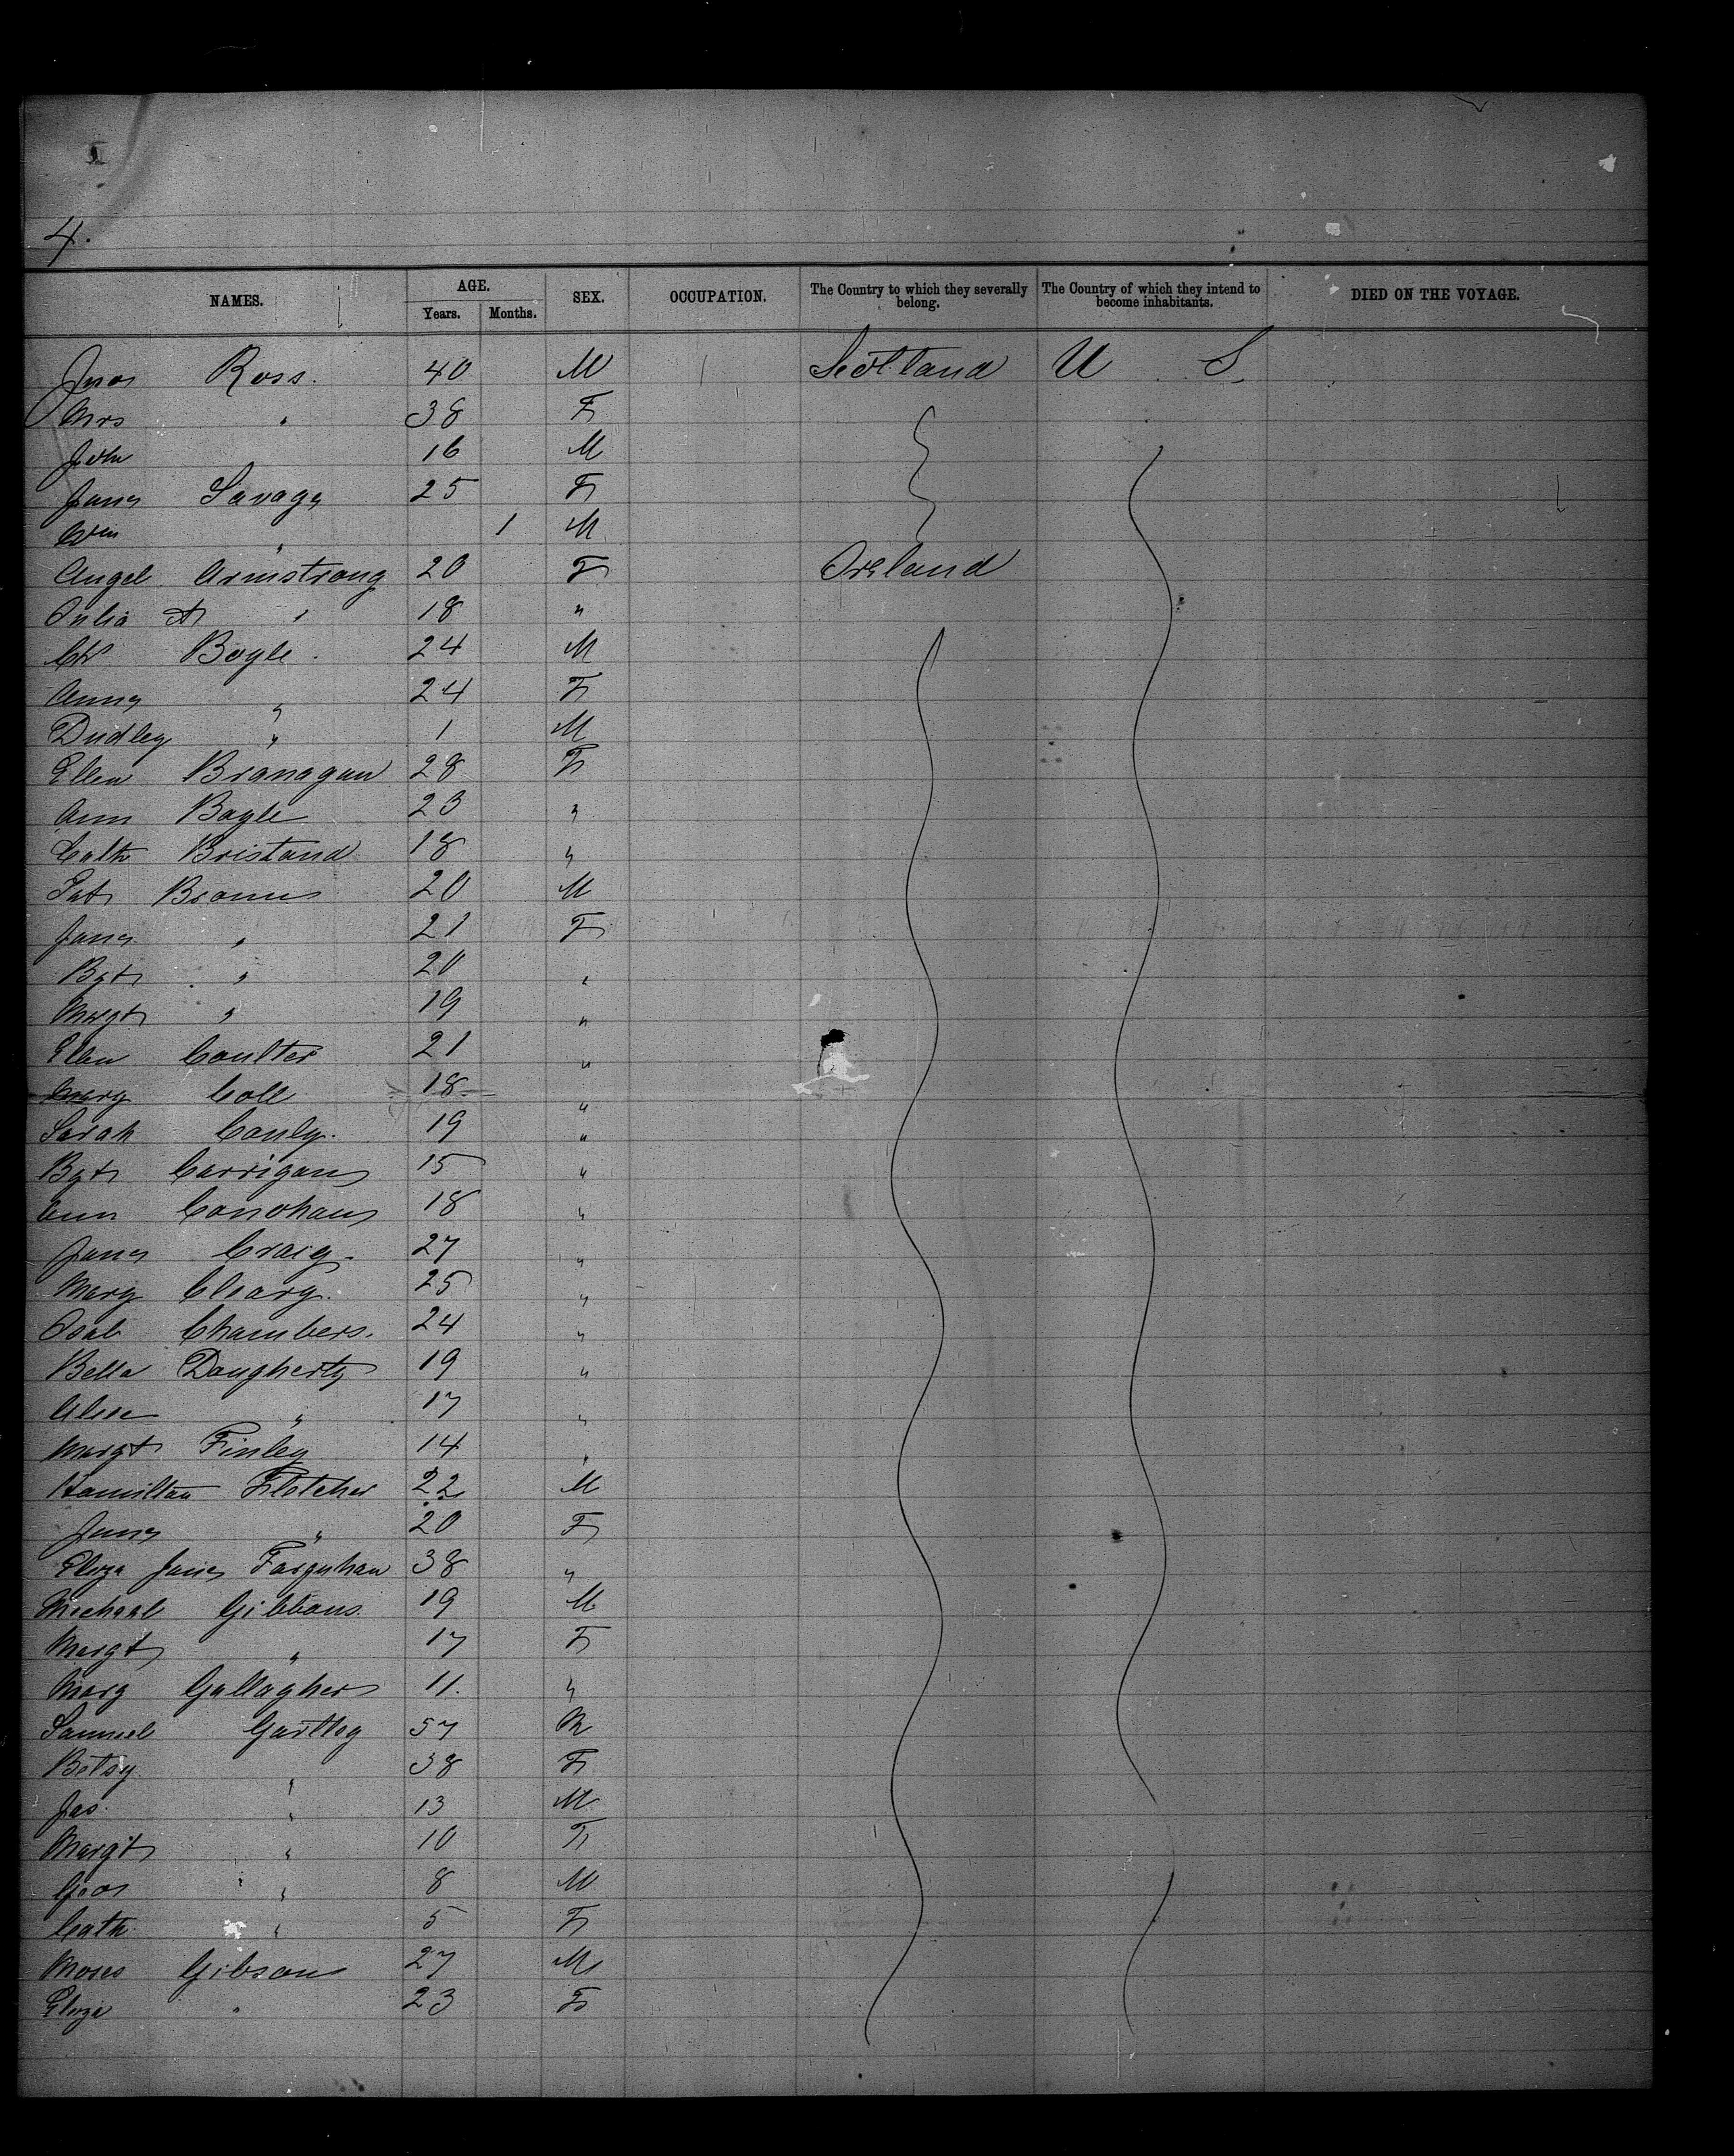 4.
NAMES. AGE. Years. Months. SEX. OCCUPATION. The Country to which they severally belong. The Country of which they intend to become inhabitants. DIED ON THE VOYAGE.
Ross. 40 M Scotland U S.
Mrs " 38 F
John 16 M
Jane Savage 25 F
Wm " 1 M
Angel Armstrong 20 F Ireland
Julia A " 18 "
Boyle. 24 M
Anny " 24 F
Dudley " 1 M
Ellen Branagan 28 F
Ann Boyle 23 "
Cath Bristand 18 "
Pat Brown 20 M
Jane " 21 F
Bgt " 20 "
Margt " 19 "
Ellen Coulter 21 "
Mary Coll 18 "
Sarah Conly. 19 "
Bgt Carrigan 15 "
Ann Conohan 18 "
Jane Craig. 27 "
Mary Cleary. 25 "
Isab Chambers. 24 "
Bella Daugherty 19 "
" 17 "
Margt Finley 14 "
Hamilton Fletcher 22 M
Jane " 20 F
Eliza Jane Farquhar 38 "
Michael Gibbons. 19 M
Margt " 17 F
Mary Gallagher 11. "
Samuel Gartley 57 M
Betsy " 38 F
Jas. " 13 M
Margt " 10 F
Geo " 8 M
Cath " 5 F
Moses Gibson 27 M
Eliza " 23 F